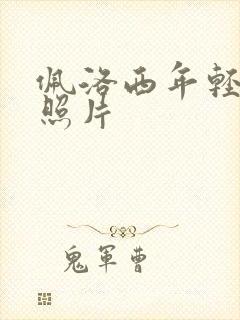 佩洛西年轻
照片
鬼軍曹